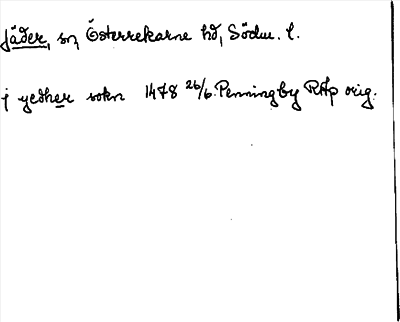 Jäder, sn, Österrekarne hd, Södm. l.
j yedher sokn 1478 26/6 Penningby RAp orig.